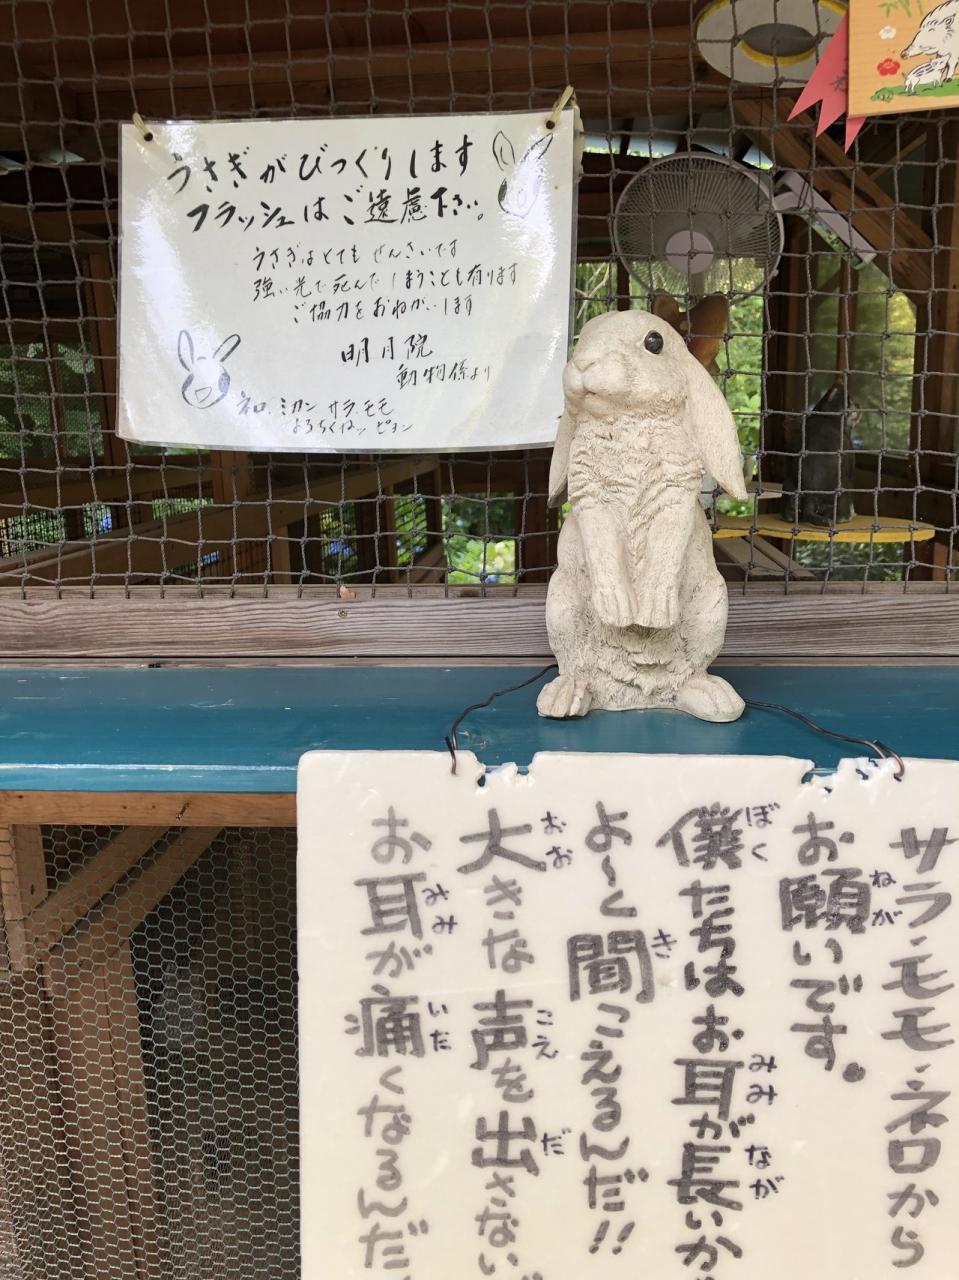 うさぎがびっくりします
フラッシュはご遠慮下さい。
うさぎはとても せんさいです
強い光で死んだ しまうことも有ります
ご協力をおねがいします
明月院
動物係より
ネロ、ミカン サラ、モモ
よろちくねッ ピョン
サラ・モモ・ネロから
お願いです。
僕たちはお耳が長いか
よ〜く聞こえるんだ!!
大きな声を出さない
お耳が痛くなるんだ